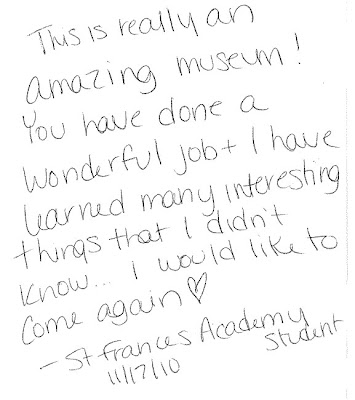 This is really an
amazing museum!
You have done a
wonderful job + I have
learned many interesting
things that I didn't
know... I would like to
come again ♡
- St Frances Academy
Student
11/17/10